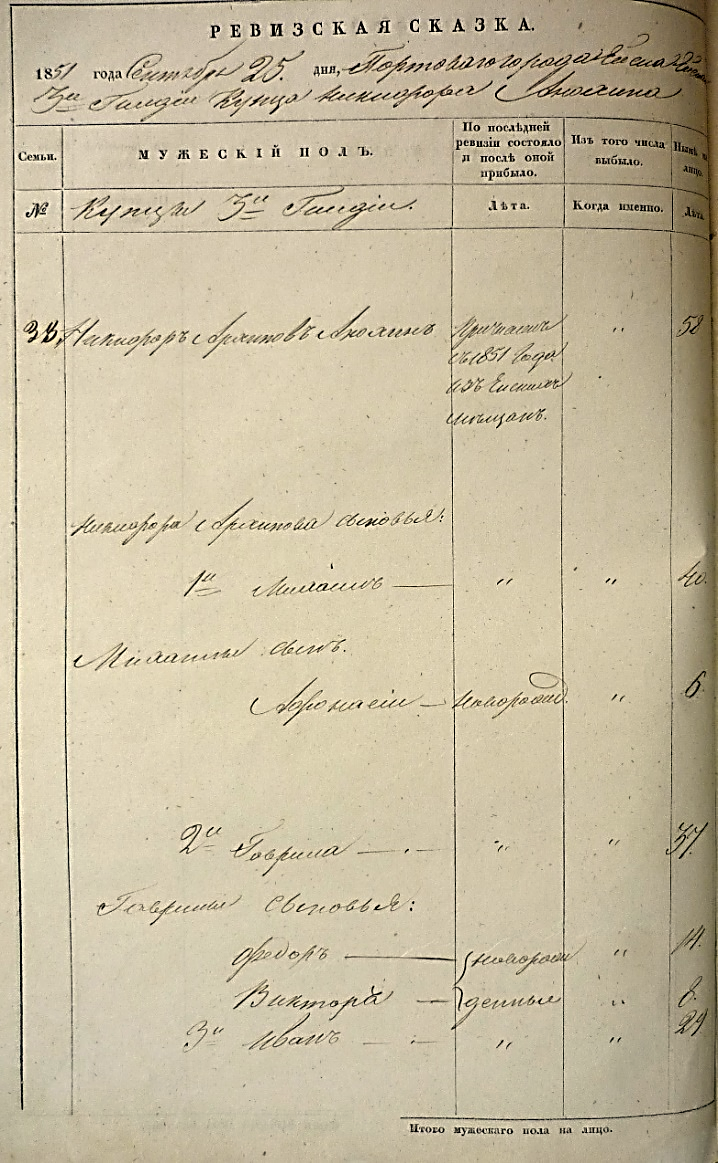 РЕВИЗСКАЯ СКАЗКА.
1851 года Сентября 25. дня, Портоваго города Ейска
3й Гилдіи Купца Никифора Анохина
Семьи. МУЖЕСКІЙ ПОЛЪ. По послѣдней ревизіи состояло и послѣ оной прибыло. Изъ того числа выбыло. Нынѣ на лицо.
№ Купцы 3й Гилдіи. Лѣта. Когда именно. Лѣта.
33, Никифоръ Архиповъ Анохинъ Причисленъ " 58
съ 1851 года
изъ Ейскихъ
мѣщанъ.
Никифора Архипова сыновья:
1й Михаилъ — " " 40.
Михаилы сынъ.
Афонасій — новорожд. " 6
2й Гаврила — . — " " 37.
Гаврилы сыновья:
Федоръ — новорож " 14.
Викторъ — денные " 8.
3й Иванъ — . — " " 29
Итого мужескаго пола на лицо.